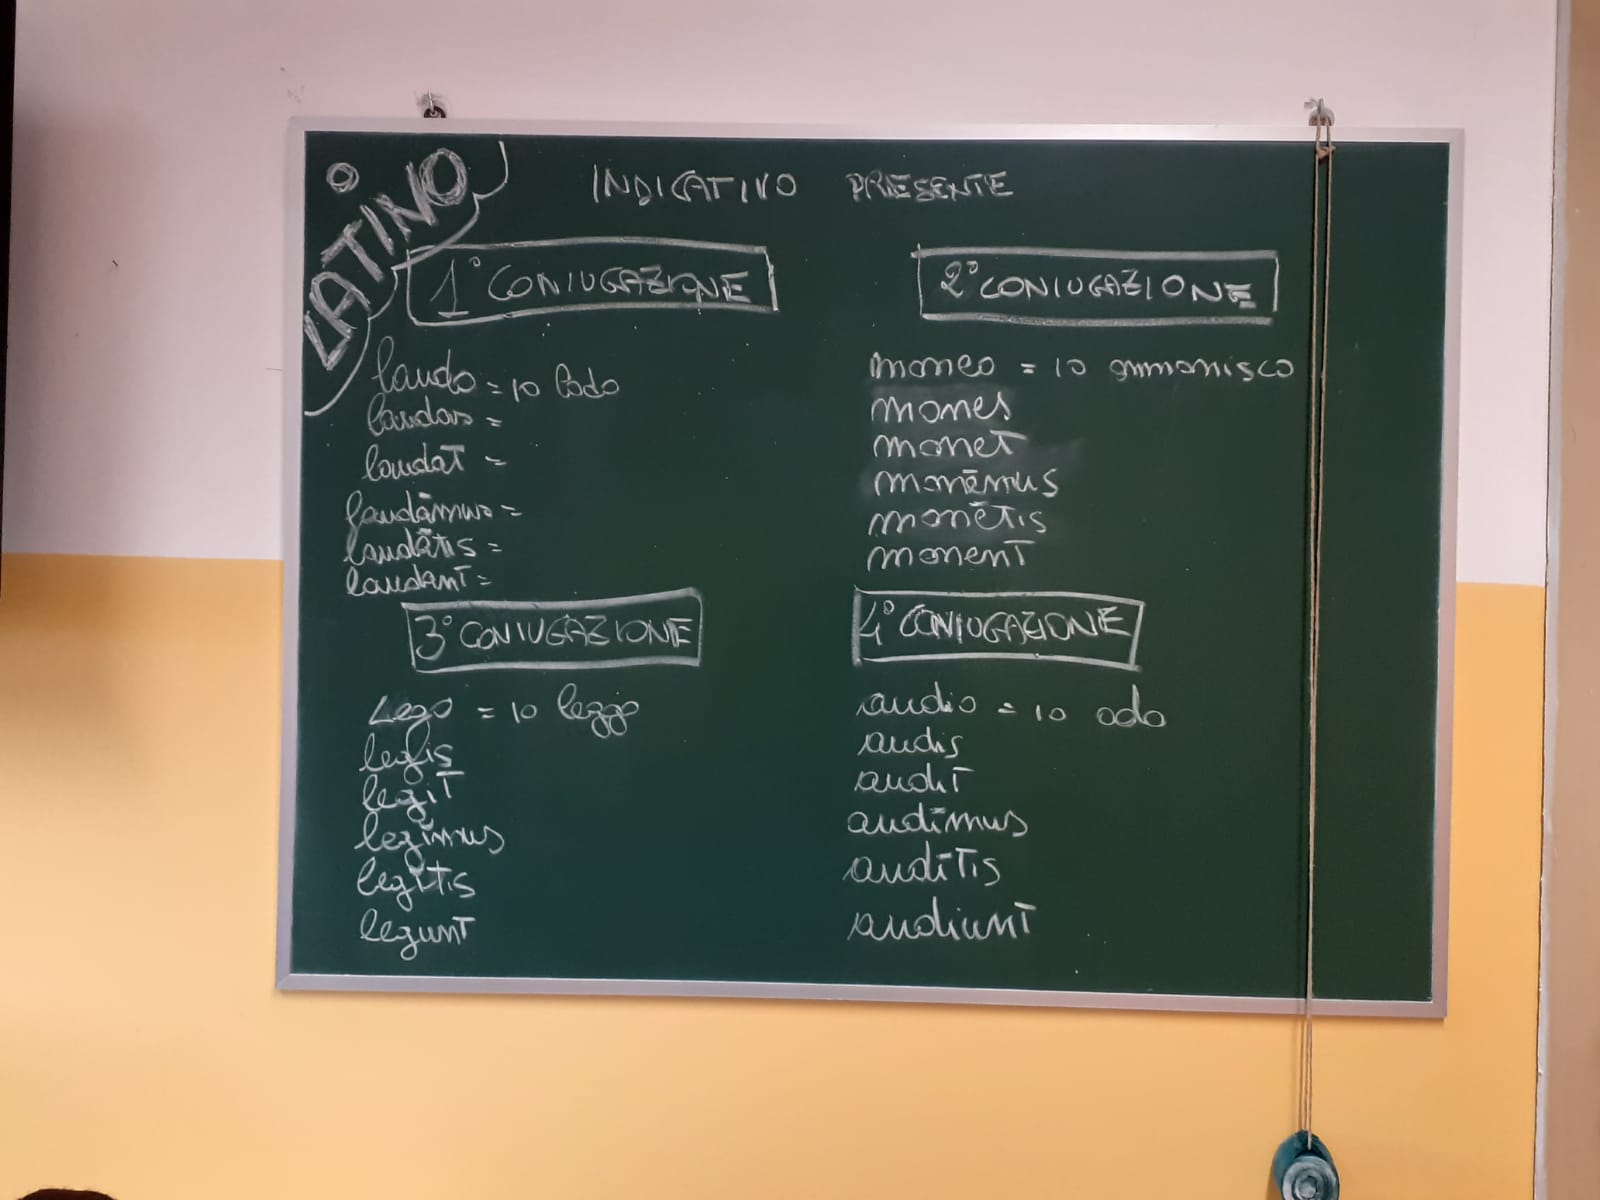 LATINO
INDICATIVO PRESENTE
1° CONIUGAZIONE
laudo = io lodo
laudas =
laudat =
laudāmus =
laudātis =
laudant =
2° CONIUGAZIONE
moneo = io ammonisco
mones
monet
monēmus
monētis
monent
3° CONIUGAZIONE
Lego = io leggo
legis
legit
legĭmus
legĭtis
legunt
4° CONIUGAZIONE
audio = io odo
audis
audit
audīmus
audītis
audiunt